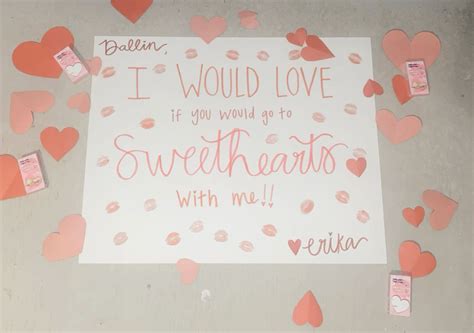 Dallin,
I WOULD LOVE
if you would go to
Sweethearts
with me!!
erika